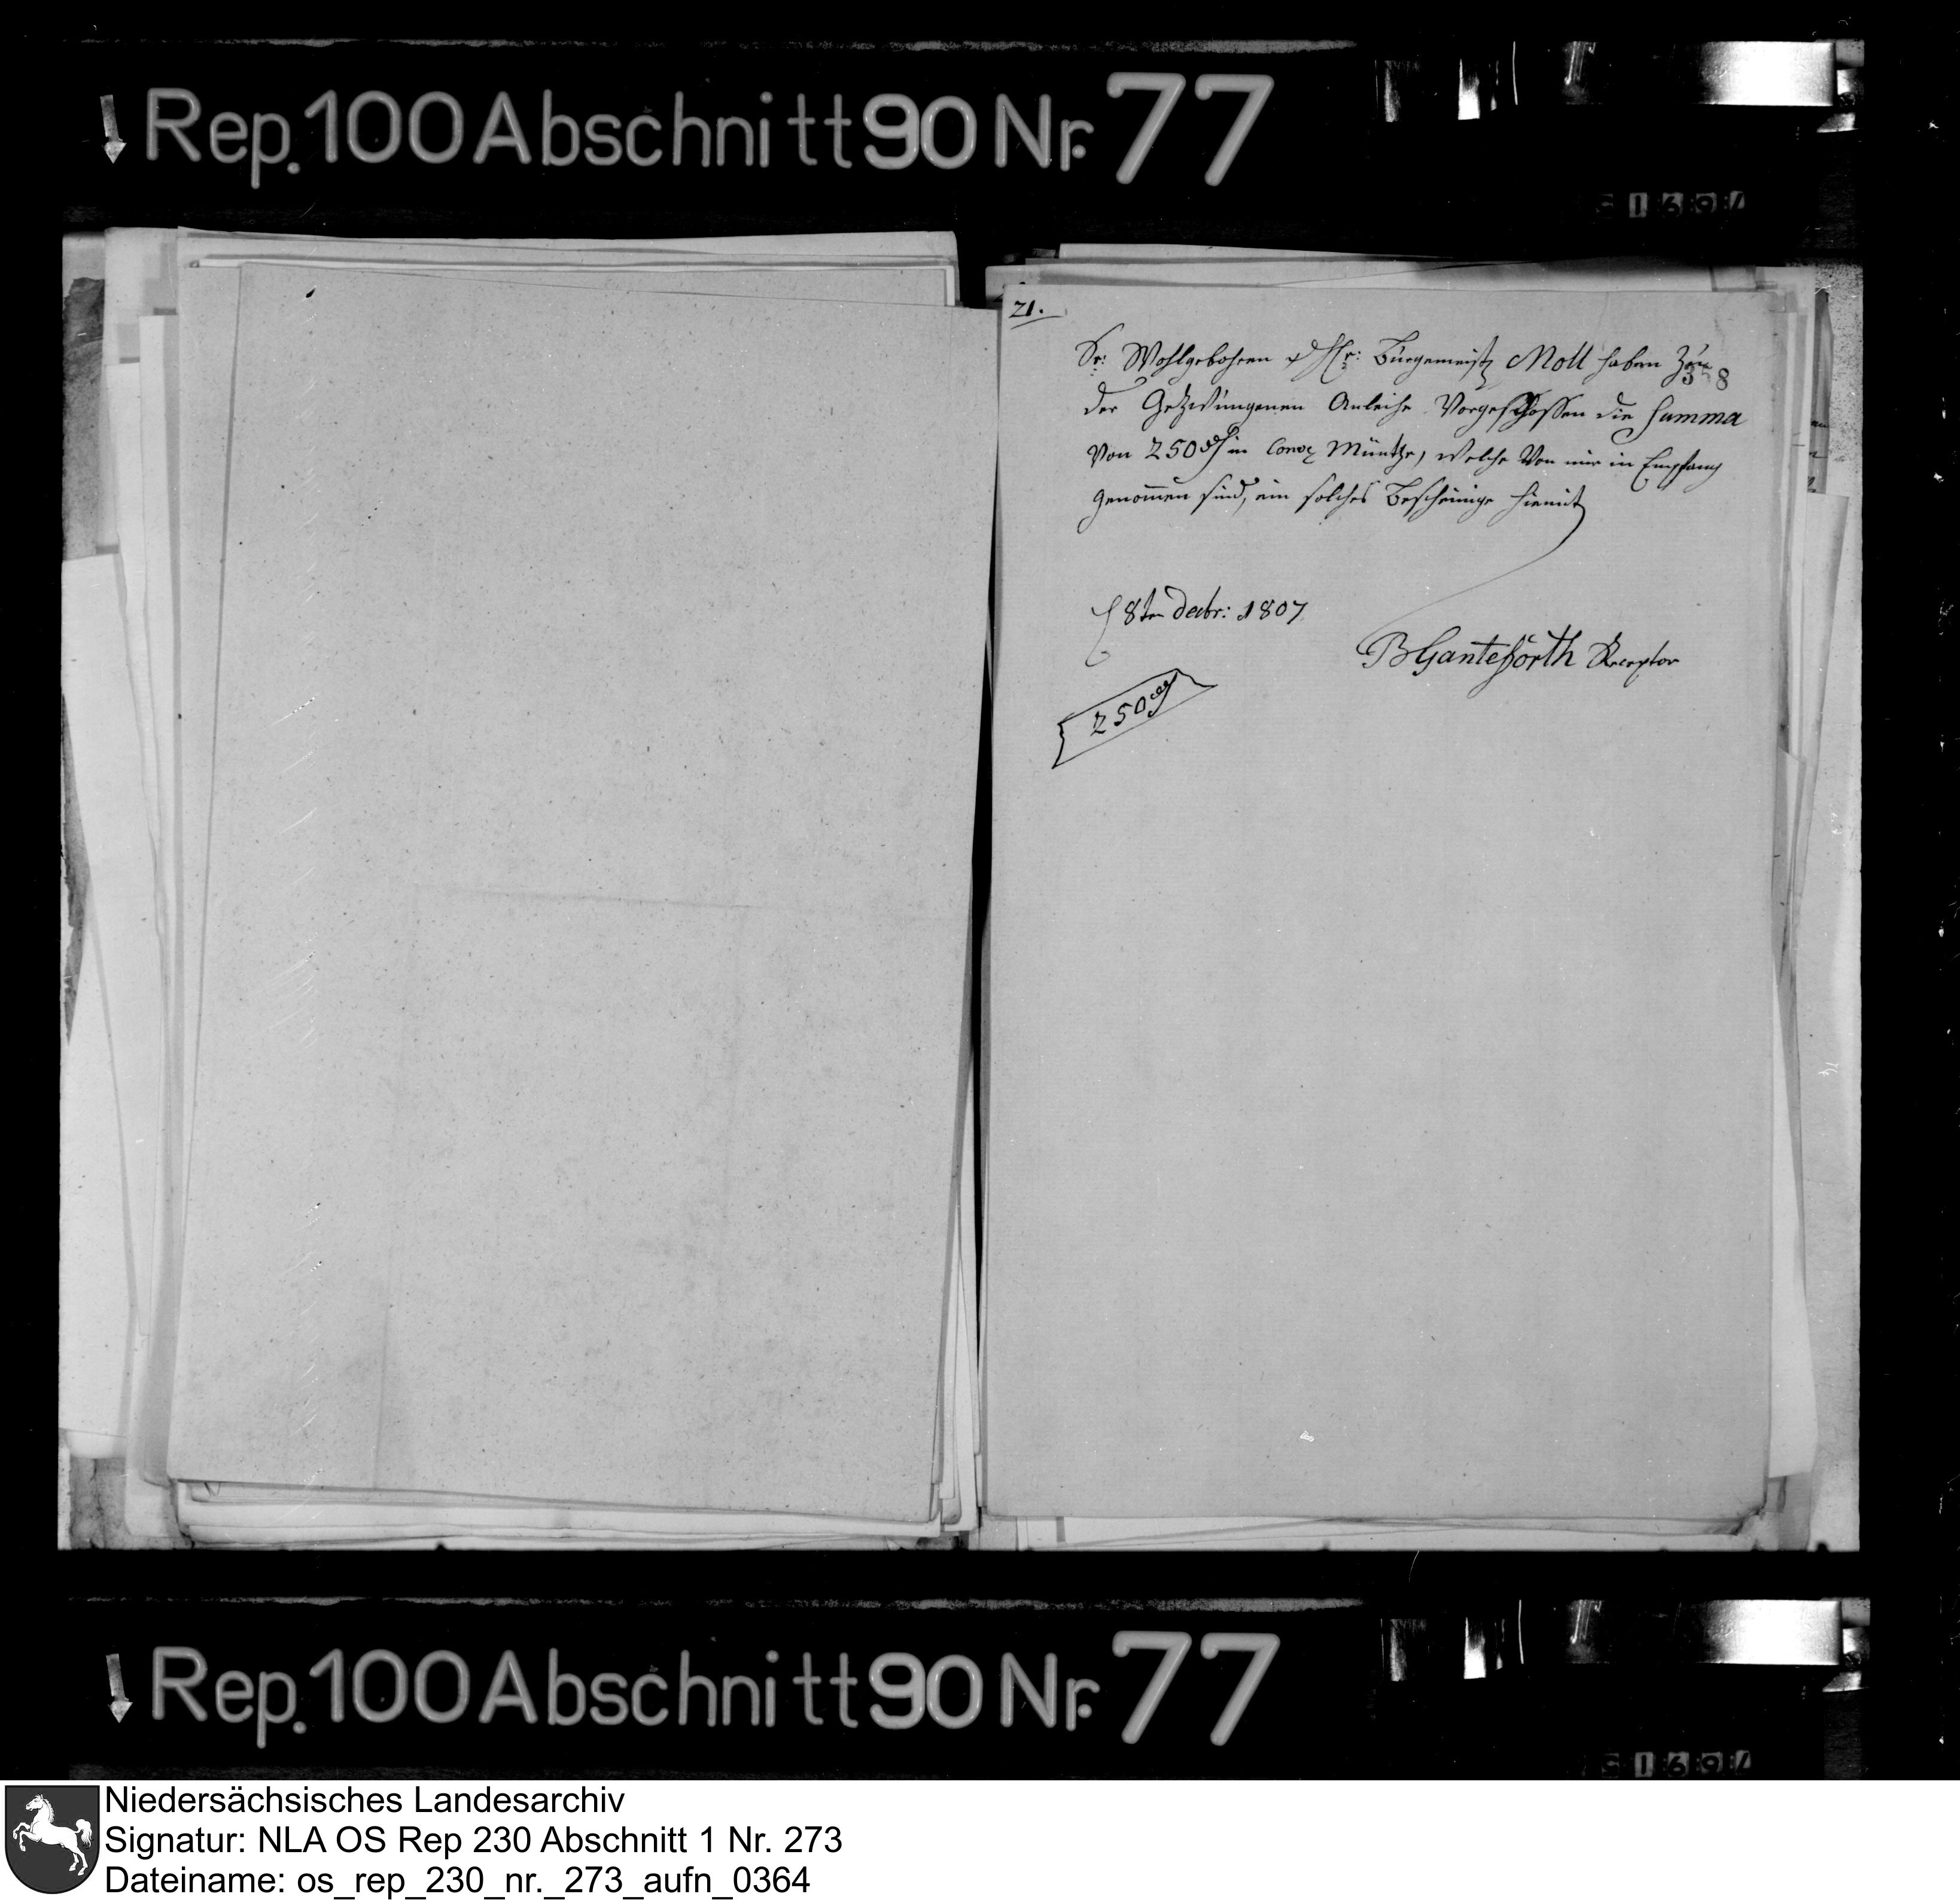 Rep. 100 Abschnitt 90 Nr. 77
21.
358
Sr: Wohlgebohren d H: Bürgemeist Moll haben zu
der Gezwungenen Anleihe Vorgeschossen die Summa
Von 250 in Conv Müntze, welche Von mir in Empfang
genom̄en sind, ein solches Bescheinige hiemit
8ten Decbr: 1807
BGanteförth Receptor
250
Rep. 100 Abschnitt 90 Nr. 77
Niedersächsisches Landesarchiv
Signatur: NLA OS Rep 230 Abschnitt 1 Nr. 273
Dateiname: os_rep_230_nr._273_aufn_0364